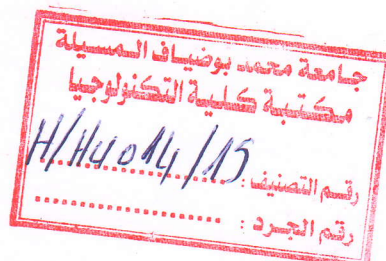 جامعة محمد بوضياف المسيلة
مكتبة كلية التكنولوجيا
رقم التصنيف : H/Hy014/15
رقم الجرد :